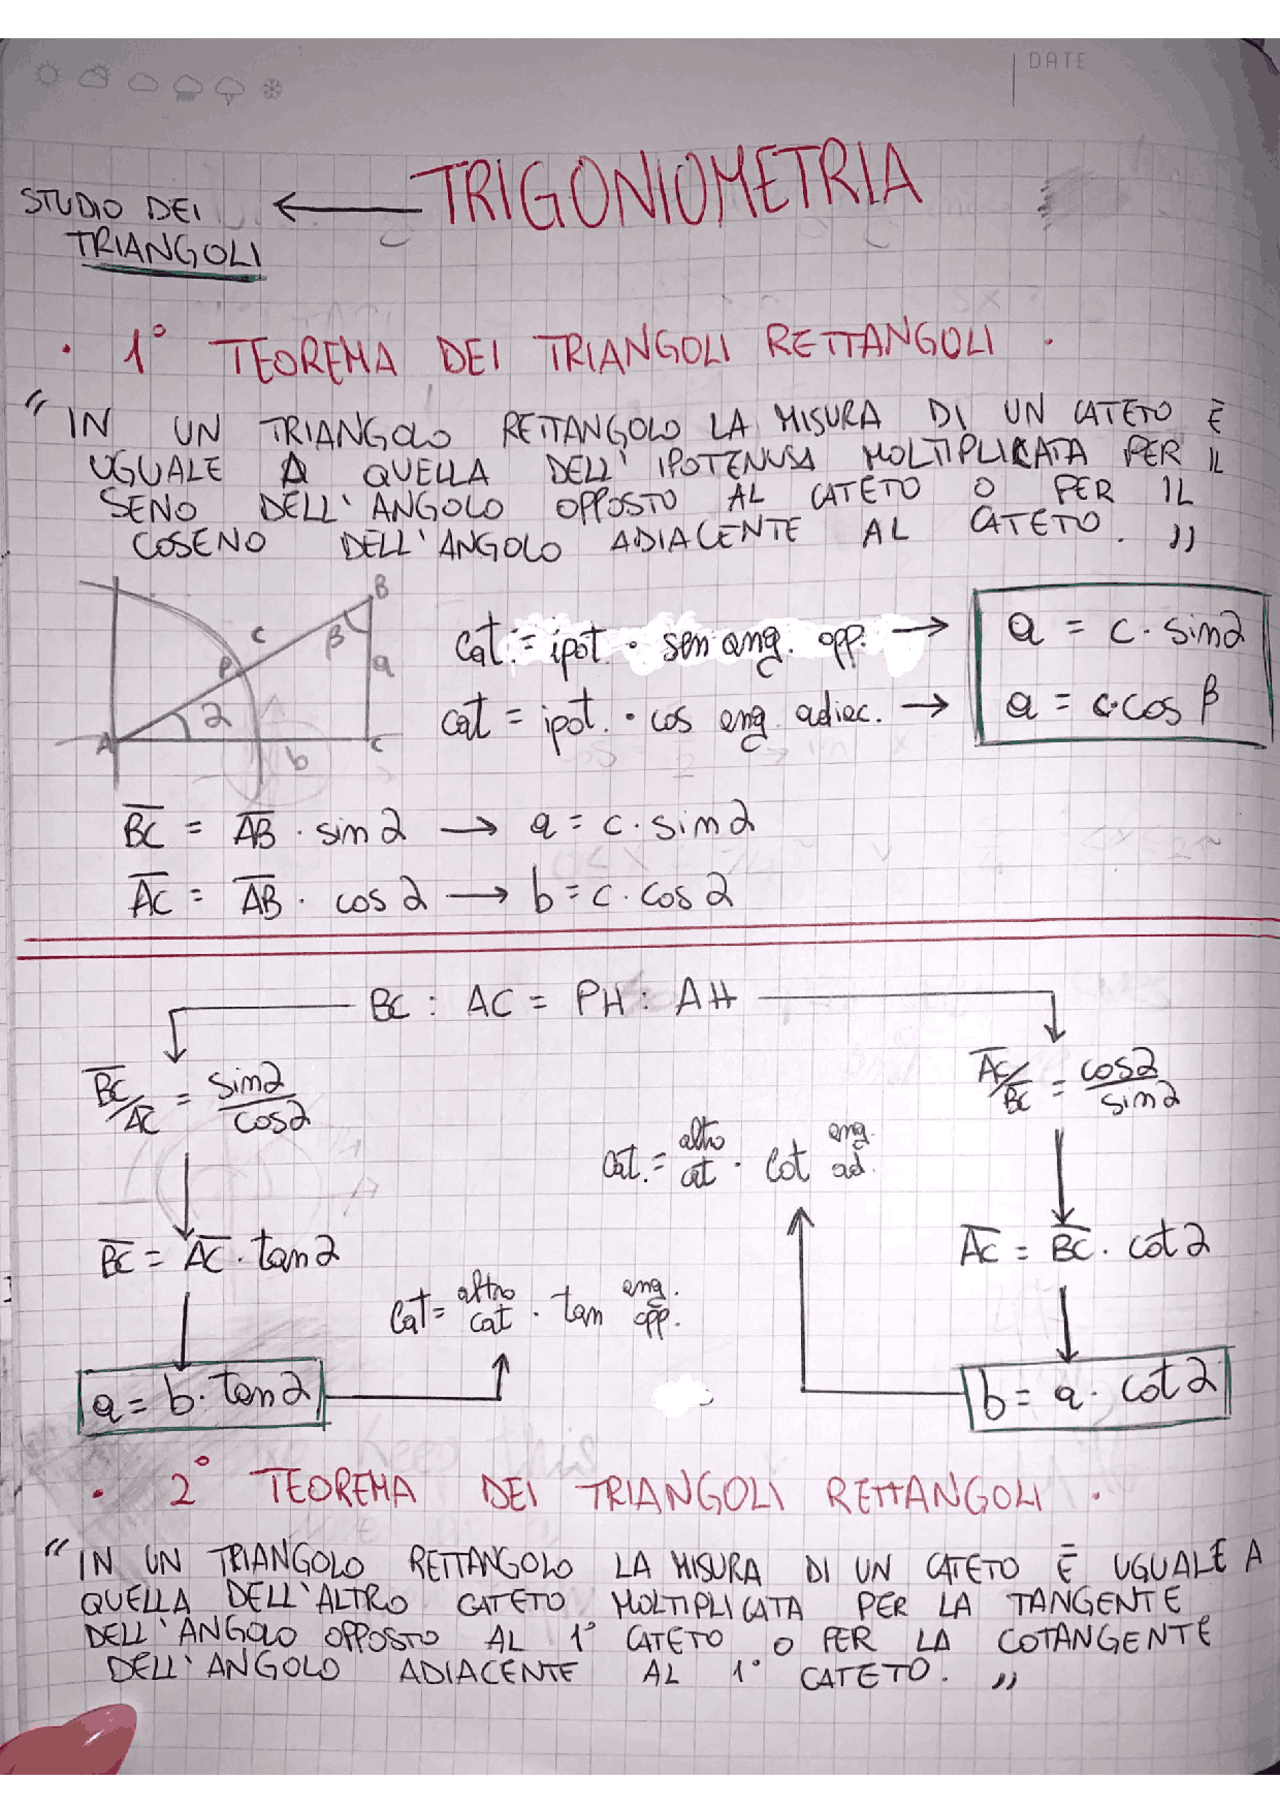 DATE
TRIGONIOMETRIA
STUDIO DEI
TRIANGOLI
• 1° TEOREMA DEI TRIANGOLI RETTANGOLI •
"IN UN TRIANGOLO RETTANGOLO LA MISURA DI UN CATETO È
UGUALE A QUELLA DELL'IPOTENUSA MOLTIPLICATA PER IL
SENO DELL'ANGOLO OPPOSTO AL CATETO O PER IL
COSENO DELL'ANGOLO ADIACENTE AL CATETO."
B
c
β
P
a
α
A
C
b
Cat. = ipot. · sen ang. opp. → a = c · sin α
cat = ipot. · cos ang. adiac. → a = c · cos β
BC = AB · sin α → a = c · sin α
AC = AB · cos α → b = c · cos α
BC : AC = PH : AH
BC/AC = sin α/cos α
AC/BC = cos α/sin α
cat. = altro cat · cot ang. ad.
BC = AC · tan α
AC = BC · cot α
Cat = altro cat · tan ang. opp.
a = b · tan α
b = a · cot α
• 2° TEOREMA DEI TRIANGOLI RETTANGOLI •
"IN UN TRIANGOLO RETTANGOLO LA MISURA DI UN CATETO È UGUALE A
QUELLA DELL'ALTRO CATETO MOLTIPLICATA PER LA TANGENTE
DELL'ANGOLO OPPOSTO AL 1° CATETO O PER LA COTANGENTE
DELL'ANGOLO ADIACENTE AL 1° CATETO."